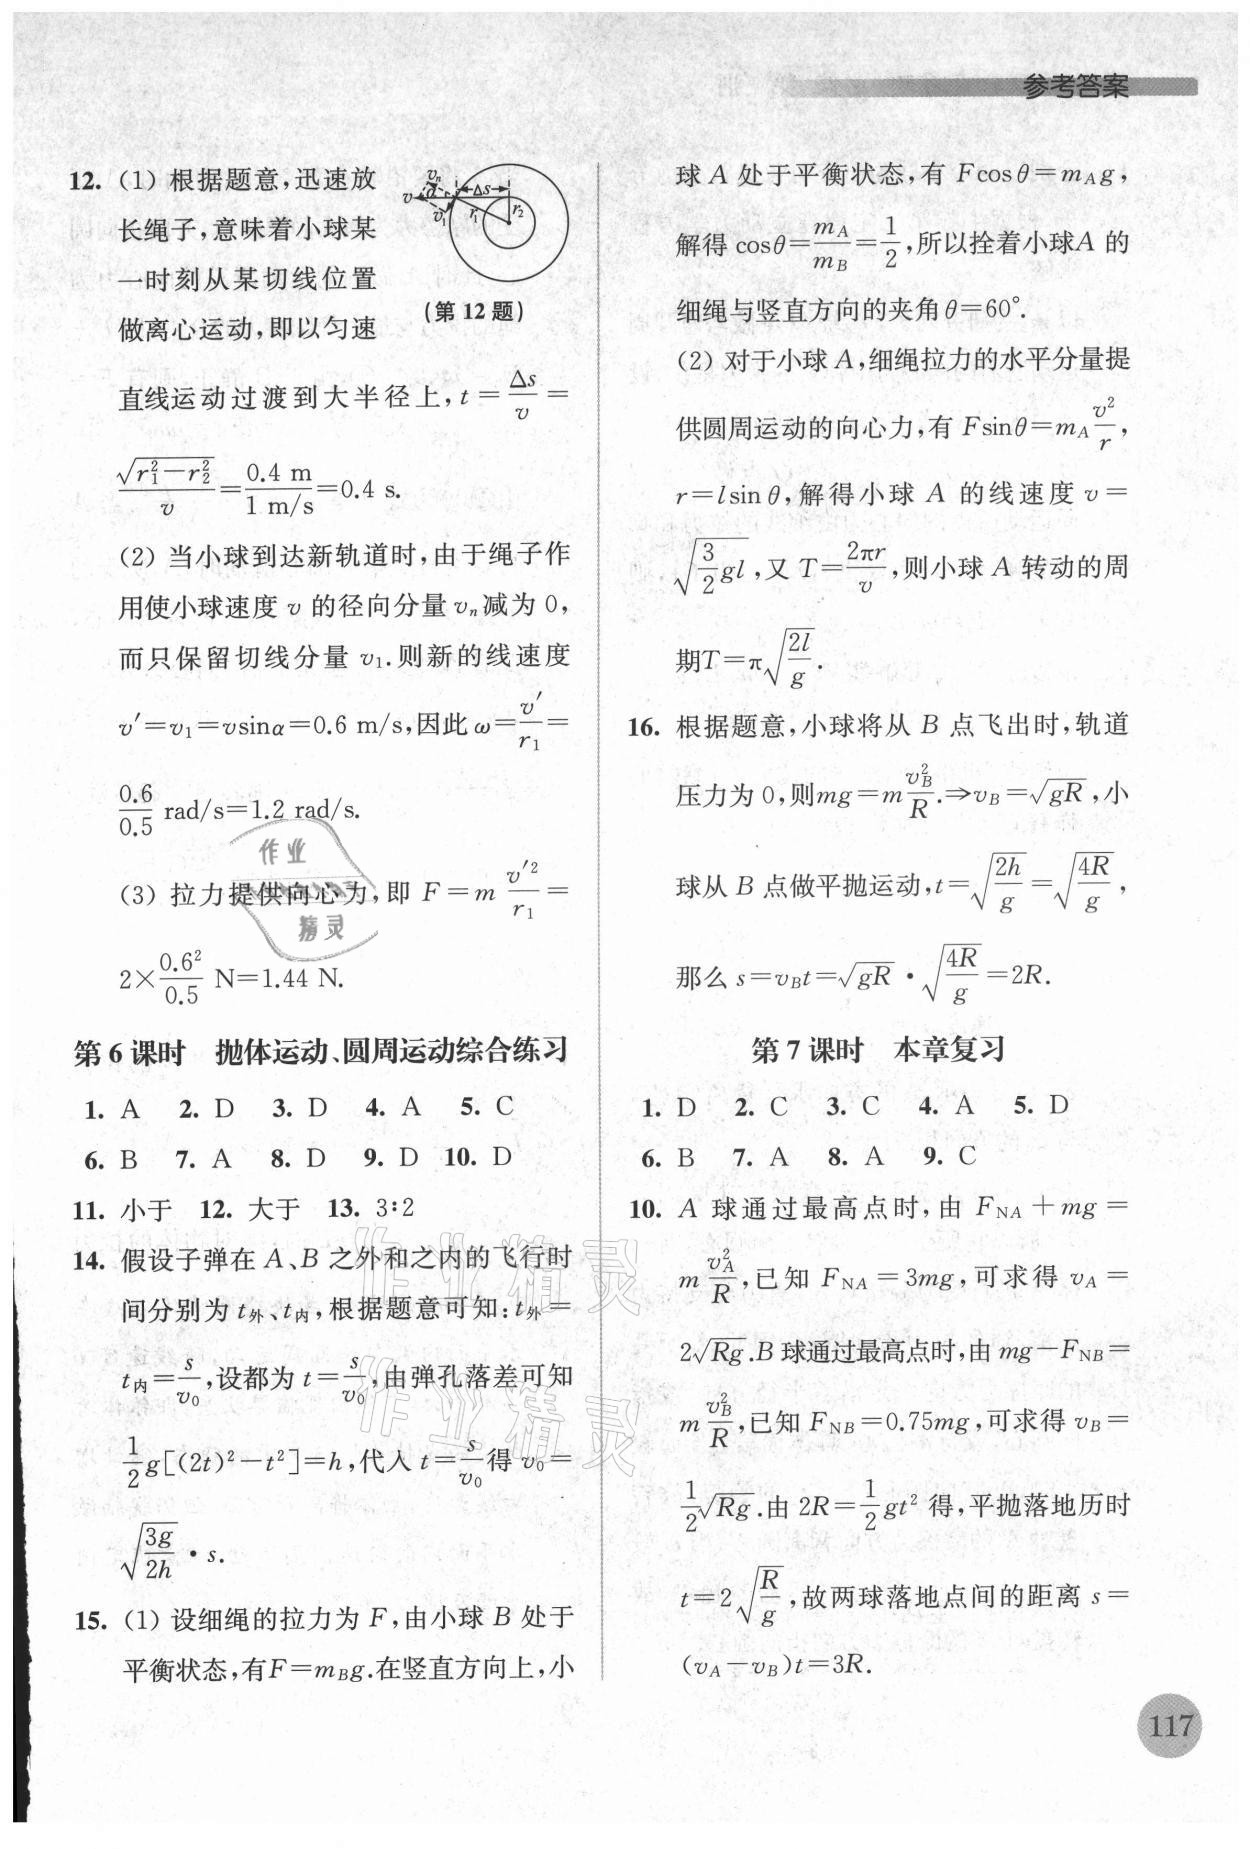 参考答案
12. (1) 根据题意,迅速放
长绳子,意味着小球某
一时刻从某切线位置
做离心运动,即以匀速
v vₙ α v₁ Δs r₁ r₂
(第 12 题)
直线运动过渡到大半径上, t = Δs/v =
√(r₁²−r₂²)/v = 0.4 m/1 m/s = 0.4 s.
(2) 当小球到达新轨道时,由于绳子作
用使小球速度 v 的径向分量 vₙ 减为 0,
而只保留切线分量 v₁. 则新的线速度
v′=v₁=vsinα=0.6 m/s,因此 ω=v′/r₁=
0.6/0.5 rad/s=1.2 rad/s.
(3) 拉力提供向心力,即 F=m v′²/r₁=
2×0.6²/0.5 N=1.44 N.
第 6 课时 抛体运动、圆周运动综合练习
1. A 2. D 3. D 4. A 5. C
6. B 7. A 8. D 9. D 10. D
11. 小于 12. 大于 13. 3∶2
14. 假设子弹在 A、B 之外和之内的飞行时
间分别为 t外、t内,根据题意可知: t外=
t内=s/v₀,设都为 t=s/v₀,由弹孔落差可知
1/2 g[(2t)²−t²]=h,代入 t=s/v₀ 得 v₀=
√(3g/2h) · s.
15. (1) 设细绳的拉力为 F,由小球 B 处于
平衡状态,有 F=m_Bg. 在竖直方向上,小
球 A 处于平衡状态,有 Fcosθ=m_Ag,
解得 cosθ=m_A/m_B=1/2,所以拴着小球 A 的
细绳与竖直方向的夹角 θ=60°.
(2) 对于小球 A,细绳拉力的水平分量提
供圆周运动的向心力,有 Fsinθ=m_A v²/r,
r=lsinθ,解得小球 A 的线速度 v=
√(3/2 gl),又 T=2πr/v,则小球 A 转动的周
期T=π√(2l/g).
16. 根据题意,小球将从 B 点飞出时,轨道
压力为 0,则mg=m v_B²/R.⇒v_B=√(gR),小
球从 B 点做平抛运动,t=√(2h/g)=√(4R/g),
那么 s=v_Bt=√(gR) · √(4R/g)=2R.
第 7 课时 本章复习
1. D 2. C 3. C 4. A 5. D
6. B 7. A 8. A 9. C
10. A 球通过最高点时,由 F_NA+mg=
m v_A²/R,已知 F_NA=3mg,可求得 v_A=
2√(Rg). B 球通过最高点时,由 mg−F_NB=
m v_B²/R,已知 F_NB=0.75mg,可求得 v_B=
1/2 √(Rg). 由 2R=1/2 gt² 得,平抛落地历时
t=2√(R/g),故两球落地点间的距离 s=
(v_A−v_B)t=3R.
117
作业
精灵
作业精灵
作业精灵